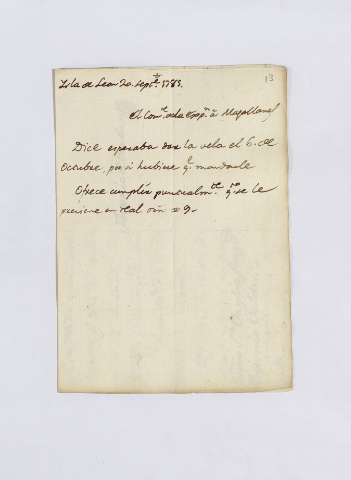 13
Isla de Leon 20. Septre. 1785.
El Comte. de la Exp.n a Magallanes
Dice esperaba dar la vela el 6. de
Octubre por si hubiese q.e mandarle
Ofrece cumplir puntualm.te q.to se le
previene en real orn